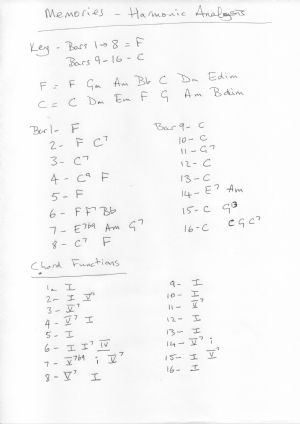 Memories - Harmonic Analysis
Key - Bars 1→8 = F
Bars 9-16 - C
F = F Gm Am Bb C Dm Edim
C = C Dm Em F G Am Bdim
Bar 1- F
2- F C7
3- C7
4- C9 F
5- F
6- F F7 Bb
7- E7b9 Am G7
8- C7 F
Bar 9- C
10- C
11- G7
12- C
13- C
14- E7 Am
15- C G
16- C C G C7
Chord Functions
1- I
2- I V7
3- V7
4- V7 I
5- I
6- I I7 IV
7- V7b9 i V7
8- V7 I
9- I
10- I
11- V7
12- I
13- I
14- V7 i
15- I V7
16- I